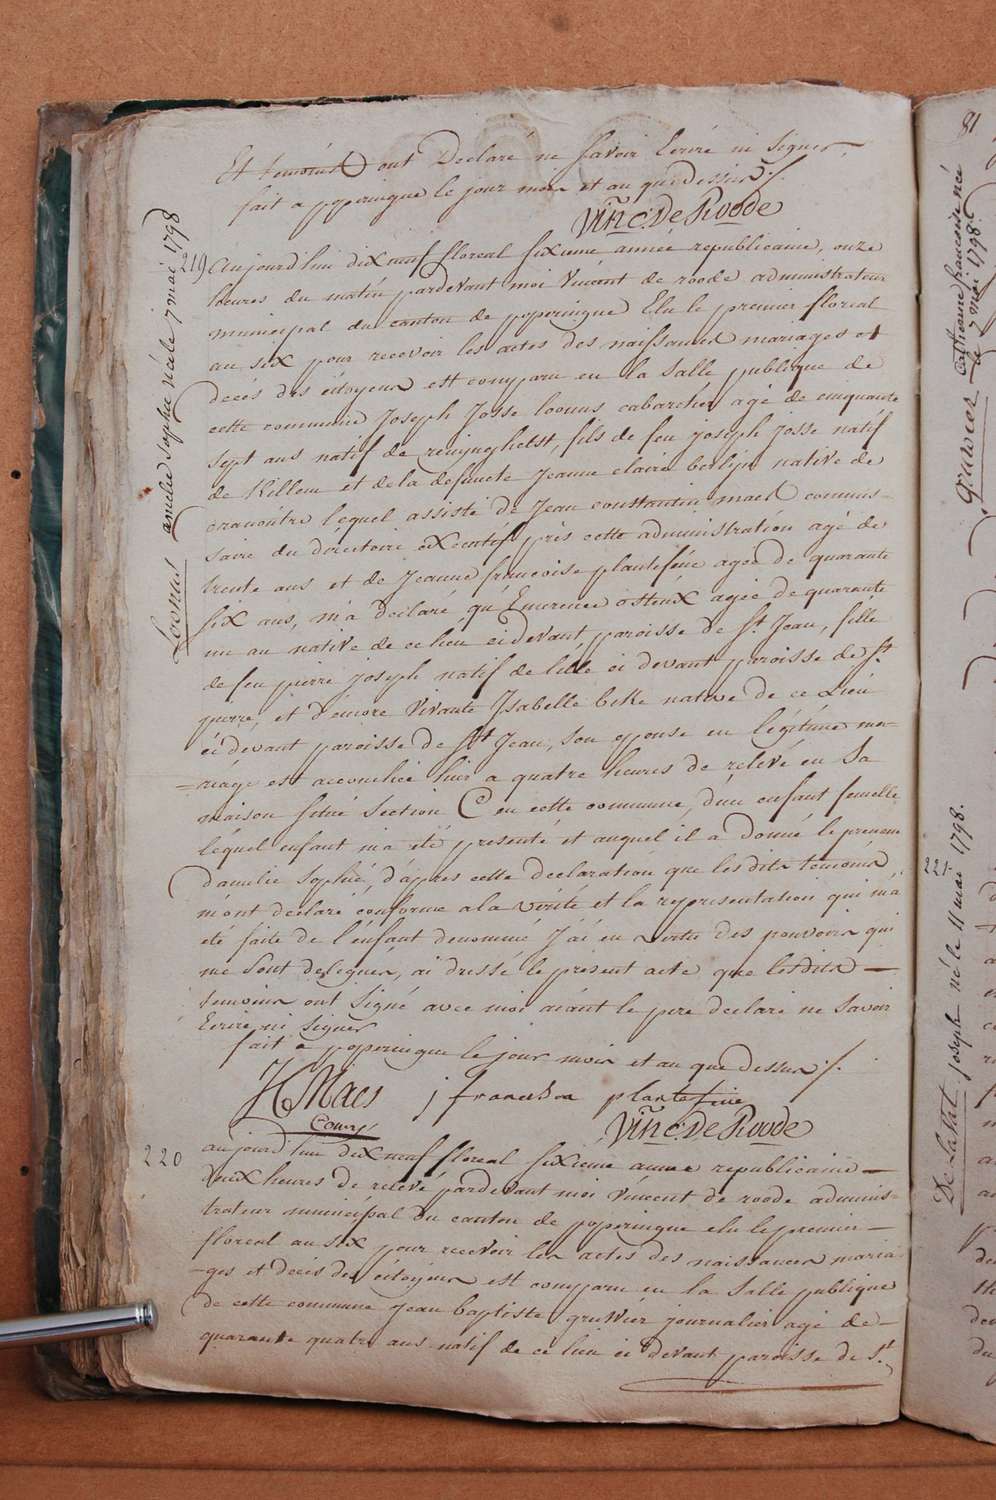 Et temoins ont Declaré ne Savoir Ecrire ni Signer,
fait a poperingue le jour mois et an que dessus ./.
Vinc: De Roode
219 Aujourd'hui dix neuf floreal sixieme année republicaine, onze
heures du matin pardevant moi Vincent de roode administrateur
municipal du canton de poperingue Elu le premier floreal
an six pour recevoir les actes des naissances mariages et
decés des citoyens est comparu en la Salle publique de
cette commune Joseph Josse loonus cabarchier agé de cinquante
sept ans natif de reninghelst, fils de feu joseph josse natif
de Killem et de la defuncte Jeanne claire native de
lequel assisté de Jean constantin maes commis-
saire du directoire executif près cette administration agé de
trente ans et de Jeanne francoise plantefeve agée de quarante
six ans, m'a declaré qu'Emerence agée de quarante
un an native de ce lieu ci devant paroisse de St. Jean, fille
de feu pierre joseph natif de lille ci devant paroisse de St.
pierre, et d'encore vivante Isabelle beke native de ce Lieu
ci devant paroisse de St Jean, son epouse en légitime ma-
=riage est accouchée hier a quatre heures de relevé en Sa
maison situé Section C en cette commune, d'un enfant femelle
lequel enfant m'a été presenté et auquel il a donné le prenom
d'amelie Sophie, d'après cette declaration que lesdits temoins
m'ont declaré conforme a la vérité et la representation qui m'a
été faite de l'enfant denommé J'ai en vertu des pouvoirs qui
me Sont delegués, ai dressé le présent acte que lesdits —
temoins ont Signé avec moi aiant le pere declaré ne Savoir
Ecrire ni Signer
fait a poperingue le jour mois et an que dessus ./.
Maes j francisca plantefeve
Comre
Vinc: De Roode
220 aujourd'hui dix neuf floreal sixieme année republicaine —
deux heures de relevé pardevant moi Vincent de roode adminis-
trateur municipal du canton de poperingue elu le premier —
floreal an six pour recevoir les actes des naissances maria-
-ges et deces des citoyens est comparu en la Salle publique
de cette commune jean baptiste gruwier journalier agé de —
quarante quatre ans natif de ce lieu ci devant paroisse de St.
Loonus amelie sophie née le 7 mai 1798
81
Gruwier Catherine francoise née
le 7 mai 1798
22
De Lattre joseph né le 11 mai 1798.